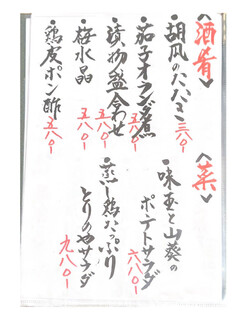 〈酒肴〉
胡瓜のたたき
三八〇-
茄子オランダ煮
五八〇-
漬物盛合わせ
五八〇-
梅水晶
五八〇-
鶏皮ポン酢
五八〇-
〈菜〉
味玉と山葵の
ポテトサラダ
六八〇-
蒸し鶏たっぷり
とりのやサラダ
九八〇-